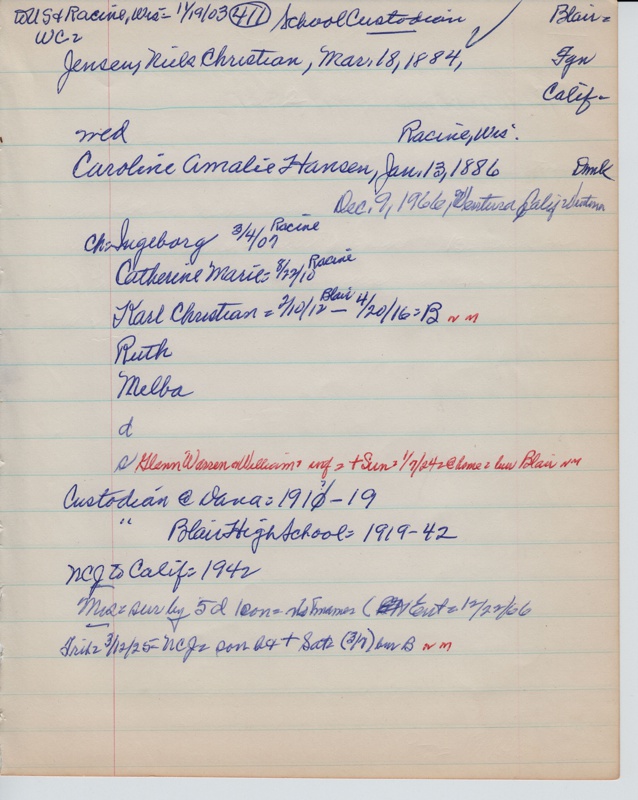 to US & Racine, Wis = 11/19/03 (411) / School Custodian Blair =
WC-2
Jensen, Niels Christian, Mar. 18, 1884, Fyn
Calif -
med Racine, Wis.
Caroline Amalie Hansen, Jan. 13, 1886 Dmk
Dec. 9, 1966, Ventura, Calif
ch = Ingeborg 3/4/07 Racine
Catherine Marie = 8/22/10 Racine
Karl Christian = 2/10/12 Blair - 4/20/16 = B ~ m
Ruth
Melba
d
s Glenn Warren William inf = + Sun = 1/7/24 = @ home = bur Blair ~m
Custodian @ Dana = 1911 - 19
" Blair High School = 1919 - 42
NCJ to Calif = 1942
Mrs = sur by 5 d 1 son = no names (Ent = 12/22/66
Trib = 3/12/25 = NCJ = son 64 + Sat = (3/7) bur B ~ m